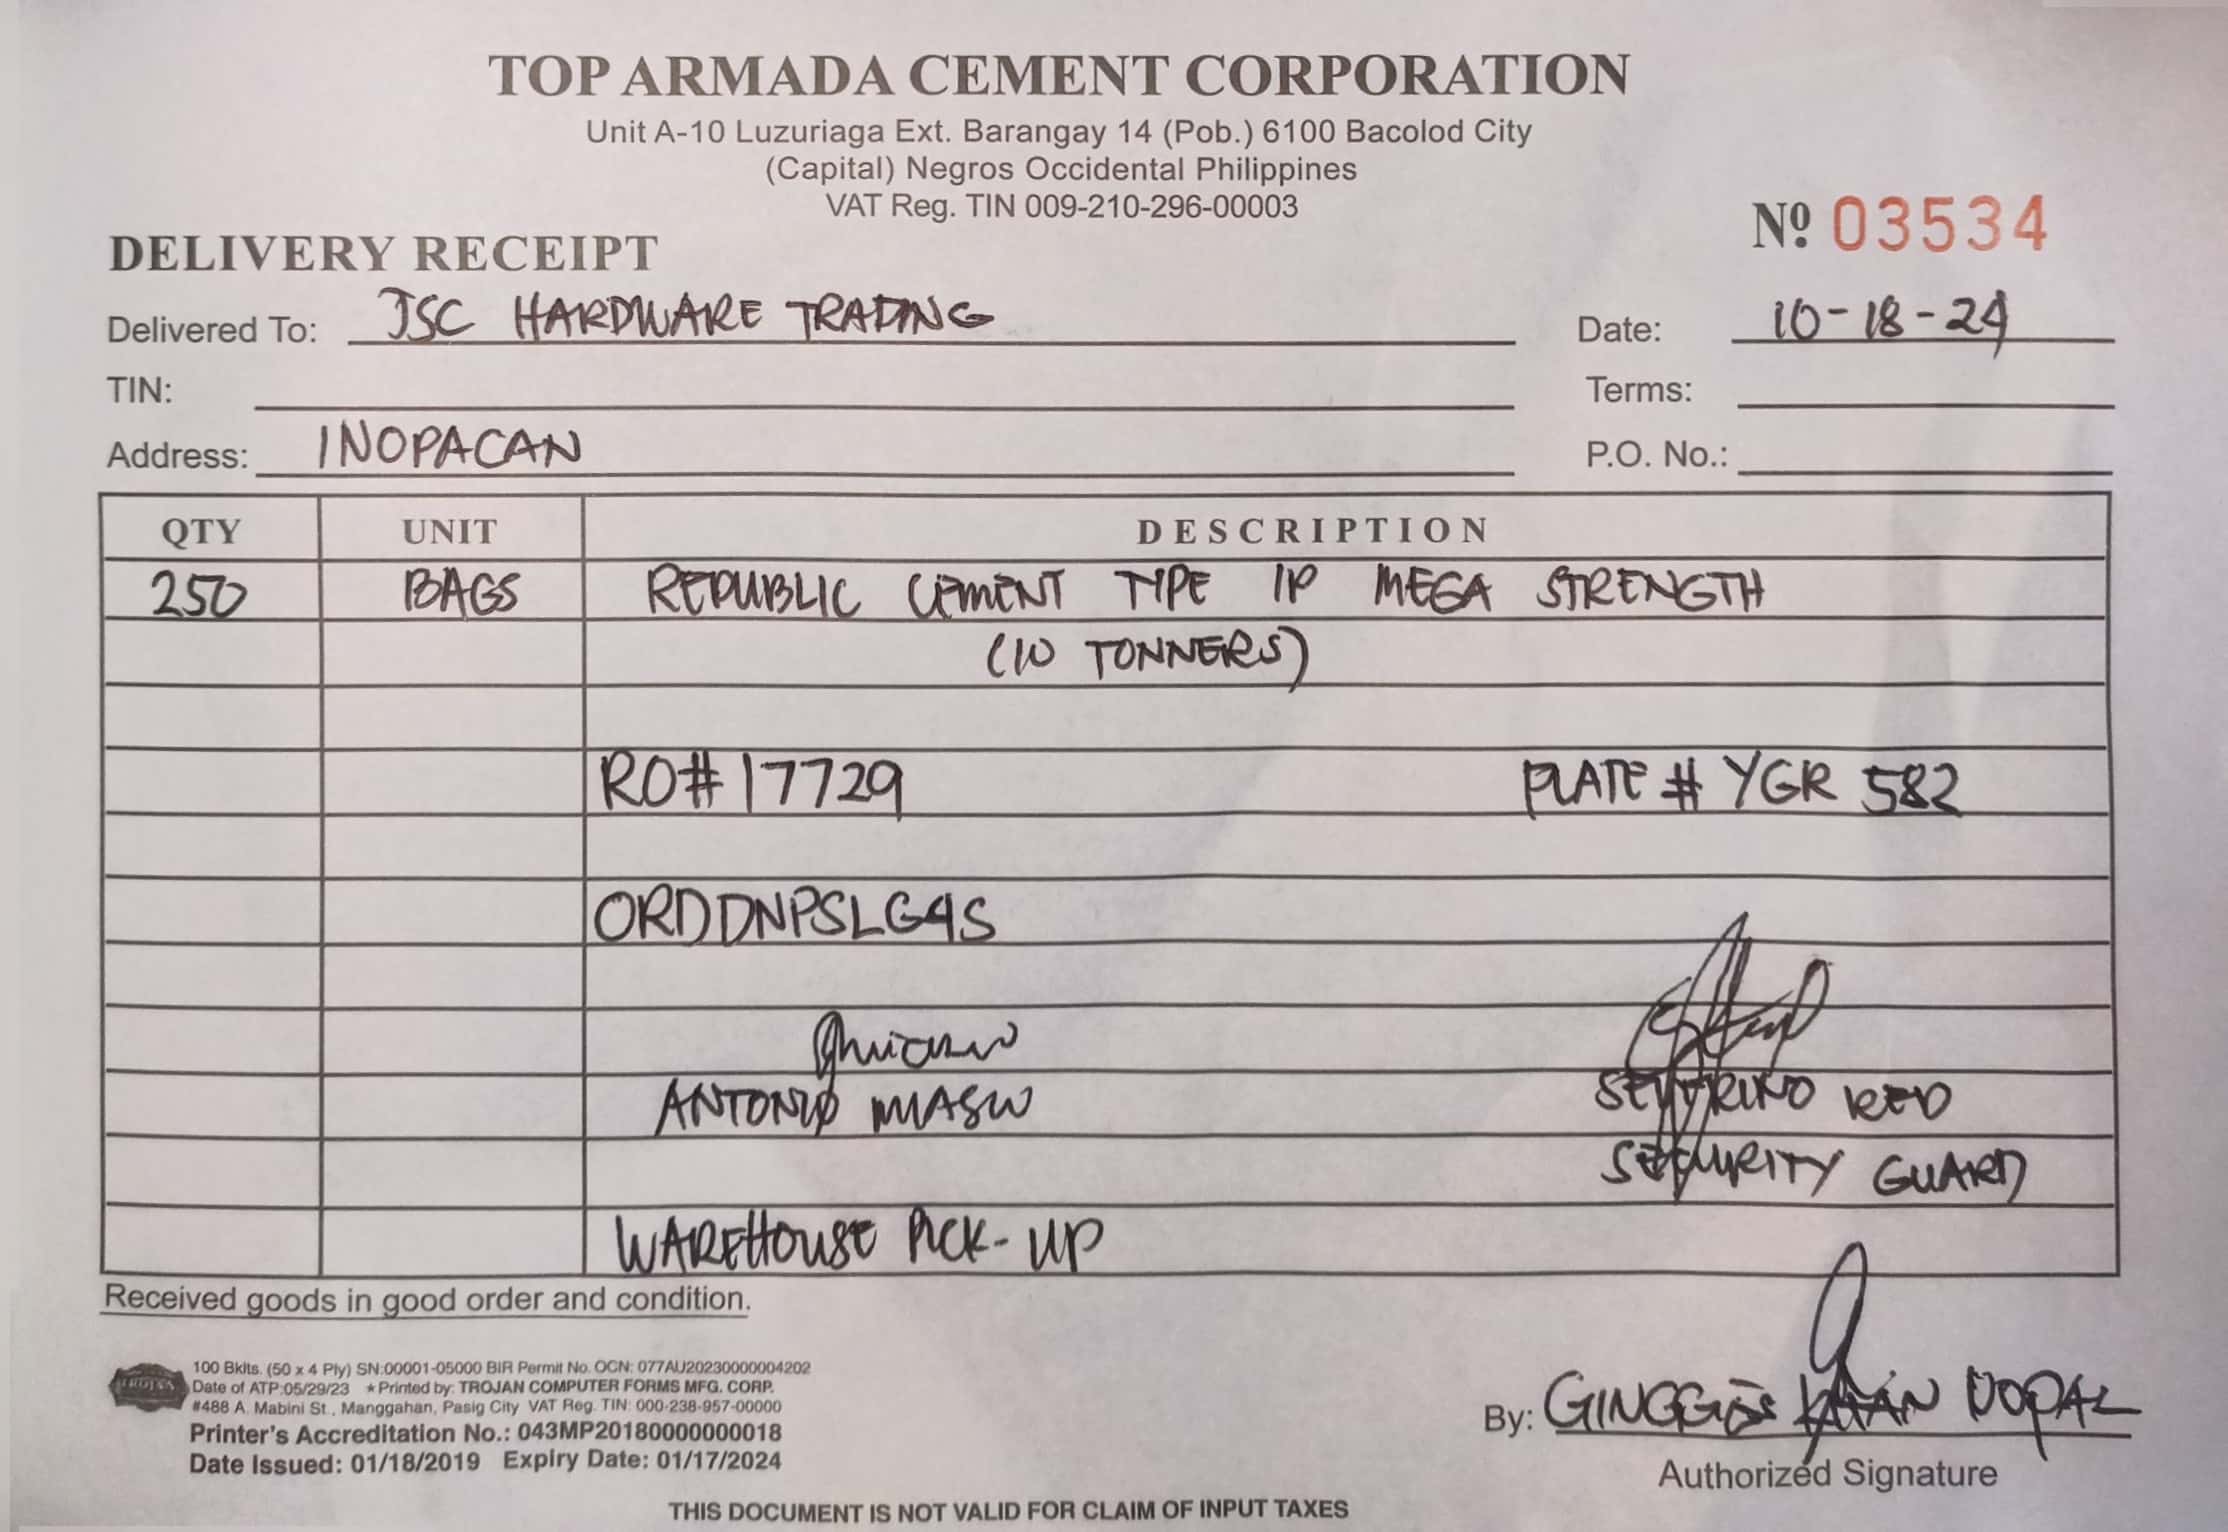 TOP ARMADA CEMENT CORPORATION
Unit A-10 Luzuriaga Ext. Barangay 14 (Pob.) 6100 Bacolod City
(Capital) Negros Occidental Philippines
VAT Reg. TIN 009-210-296-00003
Nº 03534
DELIVERY RECEIPT
Delivered To: JSC HARDWARE TRADING Date: 10-18-24
TIN: Terms:
Address: INOPACAN P.O. No.:
QTY UNIT DESCRIPTION
250 BAGS REPUBLIC CEMENT TYPE 1P MEGA STRENGTH
(10 TONNERS)
RO# 17729 PLATE # YGR 582
ORDDNPSLG4S
ANTONIO SEVERINO RED
SECURITY GUARD
WAREHOUSE PICK-UP
Received goods in good order and condition.
100 Bklts. (50 x 4 Ply) SN:00001-05000 BIR Permit No. OCN: 077AU20230000004202
Date of ATP:05/29/23 ★Printed by: TROJAN COMPUTER FORMS MFG. CORP.
#488 A. Mabini St., Manggahan, Pasig City VAT Reg. TIN: 000-238-957-00000
Printer's Accreditation No.: 043MP20180000000018
Date Issued: 01/18/2019 Expiry Date: 01/17/2024
By: KHAN NOPAL
Authorized Signature
THIS DOCUMENT IS NOT VALID FOR CLAIM OF INPUT TAXES